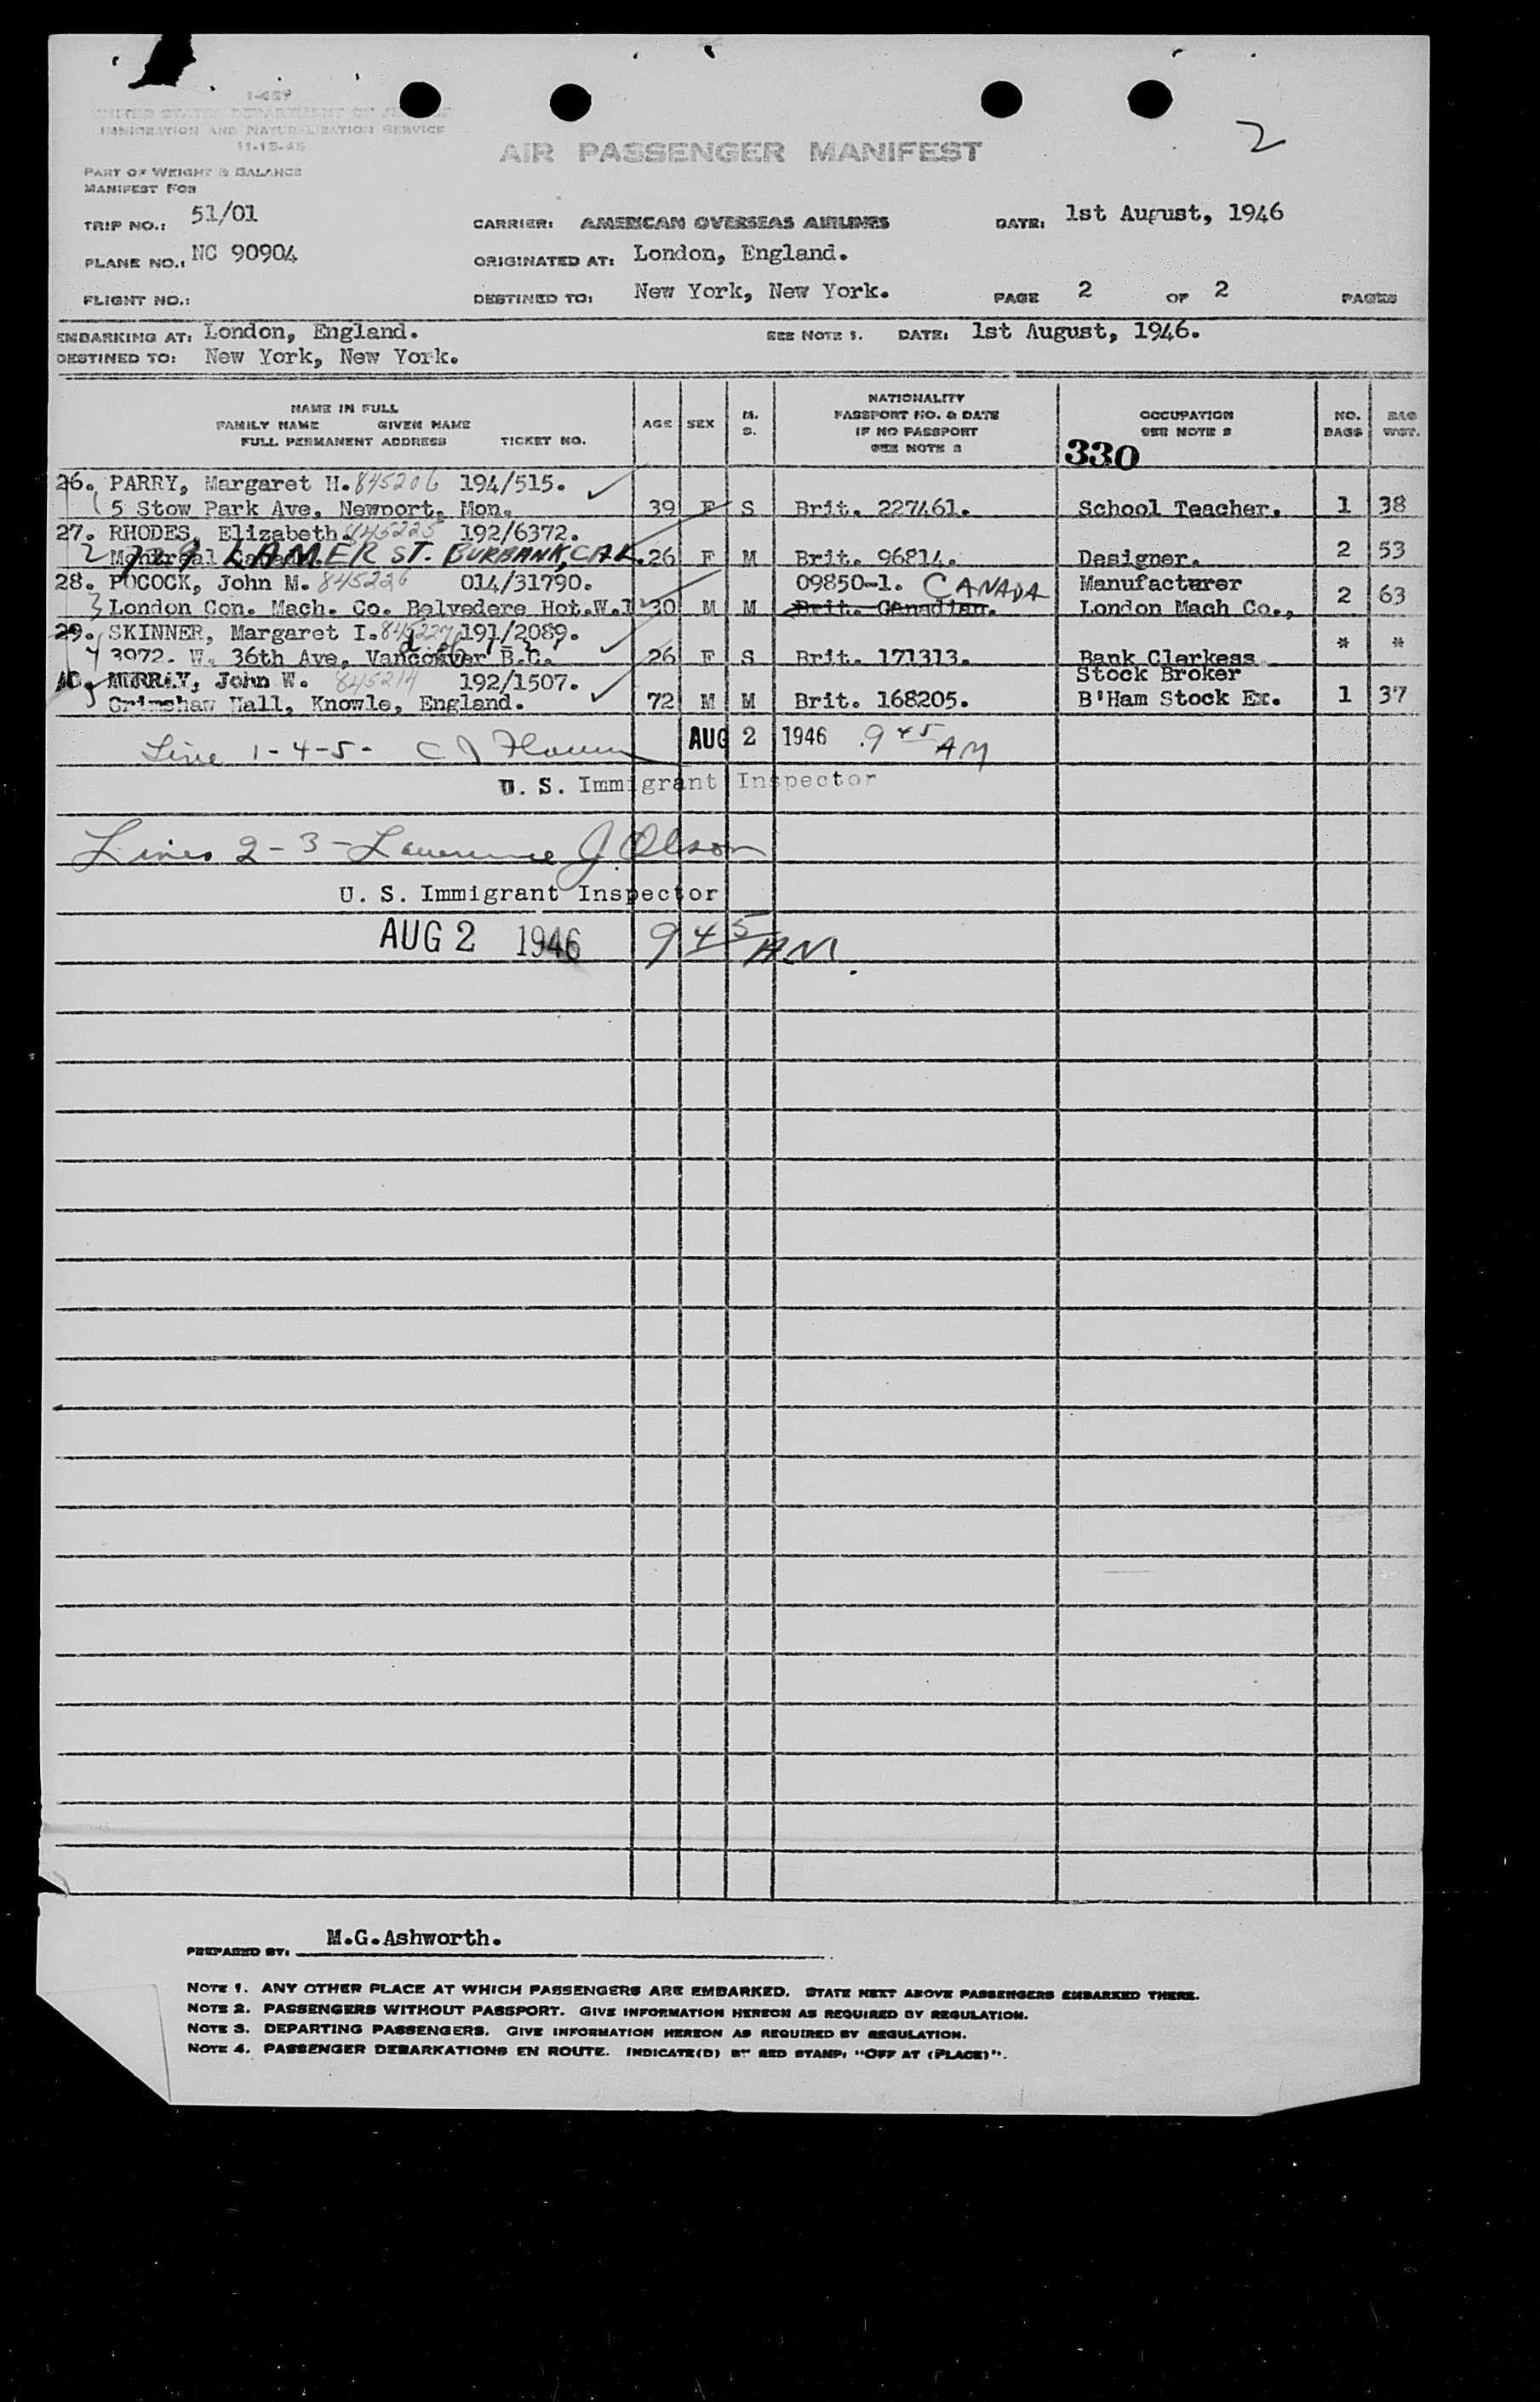 1-459
UNITED STATES DEPARTMENT OF JUSTICE
IMMIGRATION AND NATURALIZATION SERVICE
11-15-45
AIR PASSENGER MANIFEST
2
PART OF WEIGHT & BALANCE
MANIFEST FOR
TRIP NO.: 51/01 CARRIER: AMERICAN OVERSEAS AIRLINES DATE: 1st August, 1946
PLANE NO.: NC 90904 ORIGINATED AT: London, England.
FLIGHT NO.: DESTINED TO: New York, New York. PAGE 2 OF 2 PAGES
EMBARKING AT: London, England. SEE NOTE 1. DATE: 1st August, 1946.
DESTINED TO: New York, New York.
NAME IN FULL
FAMILY NAME GIVEN NAME
FULL PERMANENT ADDRESS TICKET NO.
AGE SEX M. S.
NATIONALITY
PASSPORT NO. & DATE
IF NO PASSPORT
SEE NOTE 2
OCCUPATION
SEE NOTE 3
330
NO. BAGS
BAG WGT.
26. PARRY, Margaret H. 845206 194/515.
1 5 Stow Park Ave, Newport, Mon. 39 F S Brit. 227461. School Teacher. 1 38
27. RHODES, Elizabeth. 845225 192/6372.
2 Montreal 729 LAMER ST. BURBANK, CAL. 26 F M Brit. 96814. Designer. 2 53
28. POCOCK, John M. 845226 014/31790. 09850-1. CANADA Manufacturer
3 London Con. Mach. Co. Belvedere Hot.W.1 30 M M Brit. Canadian. London Mach Co., 2 63
29. SKINNER, Margaret I. 845227 191/2089.
4 3972. W. 36th Ave, Vancouver B.C. 26 F S Brit. 171313. Bank Clerkess * *
5 MURRAY, John W. 845214 192/1507. Stock Broker
Grimshaw Hall, Knowle, England. 72 M M Brit. 168205. B'Ham Stock Ex. 1 37
Line 1-4-5- C J AUG 2 1946 9 45 AM
U. S. Immigrant Inspector
Lines 2-3- Lawrence J. Olson
U. S. Immigrant Inspector
AUG 2 1946 9 45 AM.
PREPARED BY: M.G.Ashworth.
NOTE 1. ANY OTHER PLACE AT WHICH PASSENGERS ARE EMBARKED. STATE NEXT ABOVE PASSENGERS EMBARKED THERE.
NOTE 2. PASSENGERS WITHOUT PASSPORT. GIVE INFORMATION HEREON AS REQUIRED BY REGULATION.
NOTE 3. DEPARTING PASSENGERS. GIVE INFORMATION HEREON AS REQUIRED BY REGULATION.
NOTE 4. PASSENGER DEBARKATIONS EN ROUTE. INDICATE(D) BY RED STAMP: "OFF AT (PLACE)".